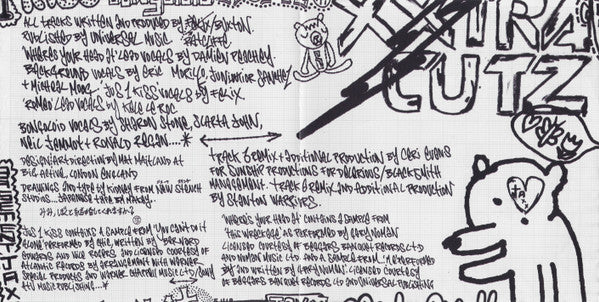 XXTRA
CUTZ
All tracks written and produced by Felix Buxton
Published by Universal Music Ratcliffe
Where's your head at lead vocals by Damien Peachey
Background vocals by Eric Morillo, Junior Sanchez
+ Michael Moog. Jus 1 Kiss vocals by Felix
Romeo lead vocals by Kele Le Roc
Bongoloid vocals by Sharon Stone, Slarta John,
Neil Jemmot + Ronald Regan....*
Design/art direction by Mat Maitland at
Big Active, London England
Drawings and type by from New
Studios... Japanese type by Macky..
Track 5 remix + additional production by Ceri Evans
for Sunship Productions for Delerious/Blacksmith
Management. Track 6 remix and additional production
by Stanton Warriors.
Jus 1 Kiss contains a sample from 'You Can't Do It
Alone' performed by Chic, written by Bernard
Edwards and Nile Rogers and licensed courtesy of
Atlantic Records by arrangement with Warner
Special Products and Warner Chappell Music Ltd/Sony
ATV Music Publishing...*
'Where's Your Head At' contains a sample from
'This Wreckage' as performed by Gary Numan
Licensed courtesy of Beggars Banquet Records Ltd
and Numan Music Ltd and a sample from 'M' performed
by and written by Gary Numan. Licensed courtesy
of Beggars Banquet Records Ltd and Universal Publishing